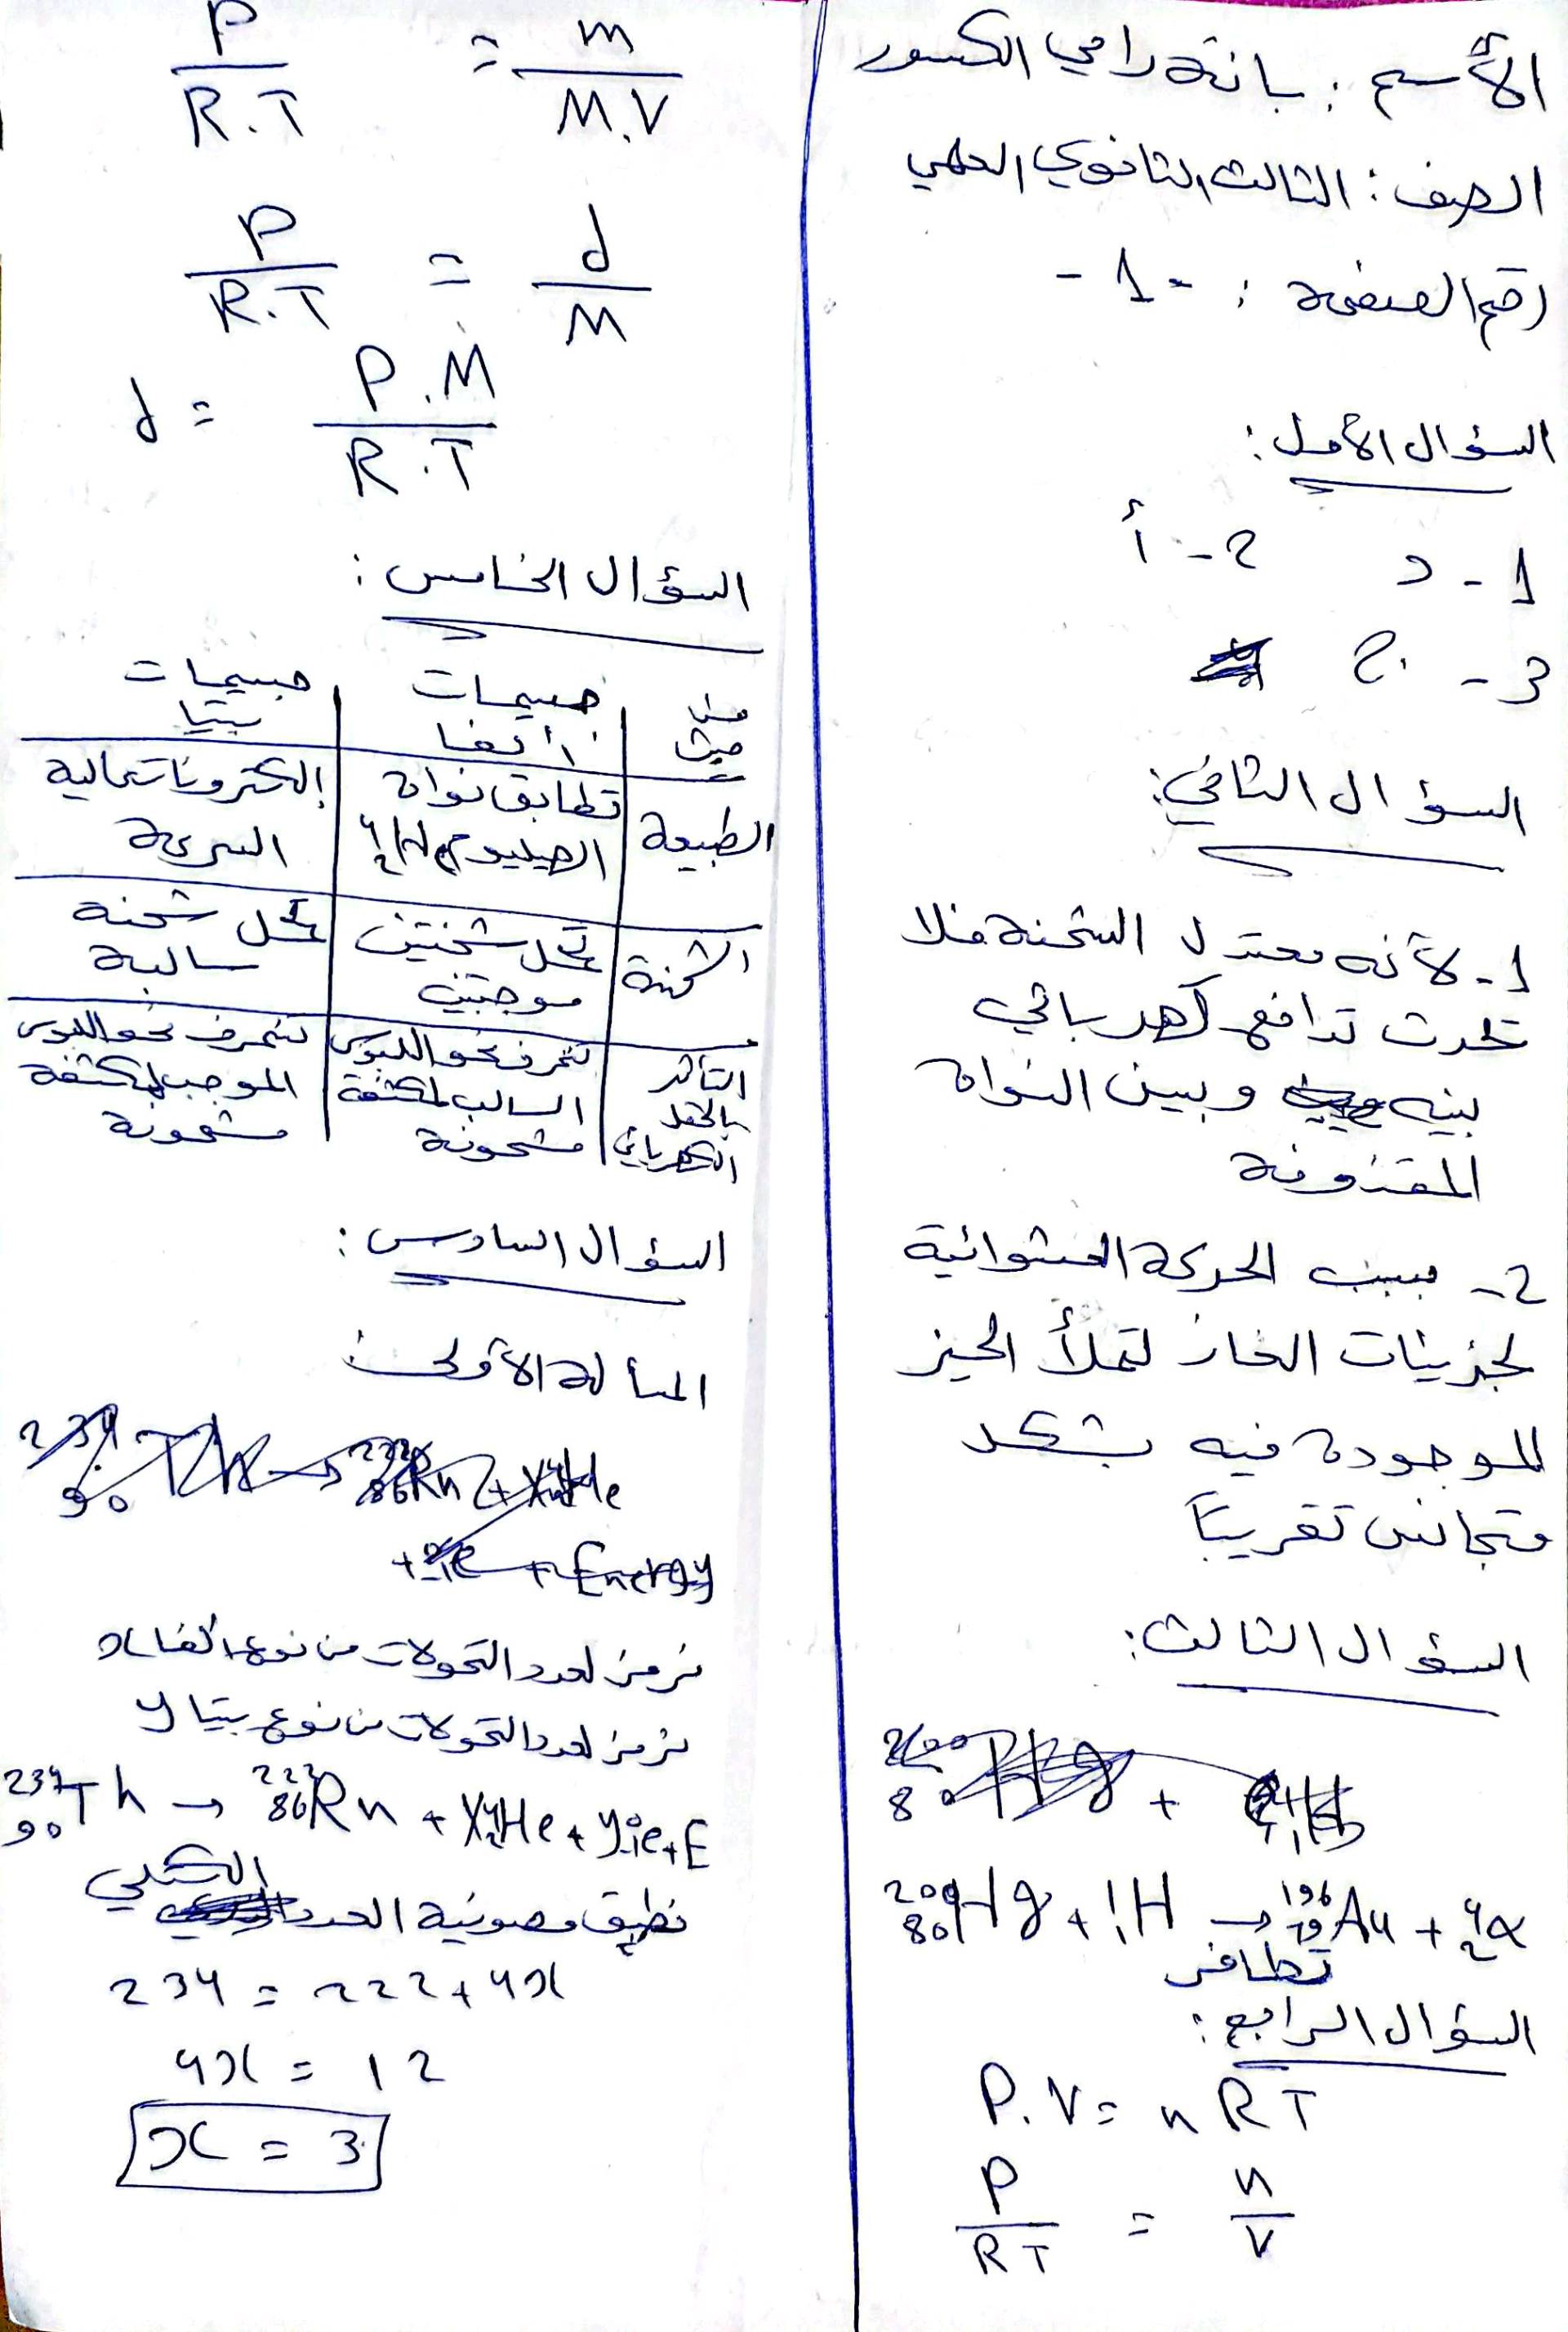 الأسم : بانة رامي الكسور
الصف : الثالث الثانوي العلمي
رقم الصفحة : - 1 -
السؤال الأول :
1 - د 2 - أ
3 - ج
السؤال الثاني :
1 - لأنه معتدل الشحنة فلا
تحدث تدافع كهربائي
بينه وبين النواة
المقذوفة
2 - بسبب الحركة العشوائية
لجزيئات الغاز لتملأ الحيز
الموجودة فيه بشكل
متجانس تقريباً
السؤال الثالث :
²⁰⁰₈₀Hg + ¹₁H → ¹⁹⁶₇₉Au + ⁴₂α
تطافر
السؤال الرابع :
P.V = n R T
P / RT = n / V
P / R.T = m / M.V
P / R.T = d / M
d = P.M / R.T
السؤال الخامس :
من حيث | جسيمات ألفا | جسيمات بيتا
الطبيعة | تطابق نواة الهيليوم ⁴₂He | إلكترونات عالية السرعة
الشحنة | تحمل شحنتين موجبتين | تحمل شحنة سالبة
التأثر بالحقل الكهربائي | تنحرف نحو اللبوس السالب لمكثفة مشحونة | تنحرف نحو اللبوس الموجب لمكثفة مشحونة
السؤال السادس :
المسألة الأولى
نرمز لعدد التحولات من نوع ألفا x
نرمز لعدد التحولات من نوع بيتا y
²³⁴₉₀Th → ²²²₈₆Rn + x⁴₂He + y⁰₋₁e + E
نطبق مصونية العدد الكتلي
234 = 222 + 4x
4x = 12
x = 3